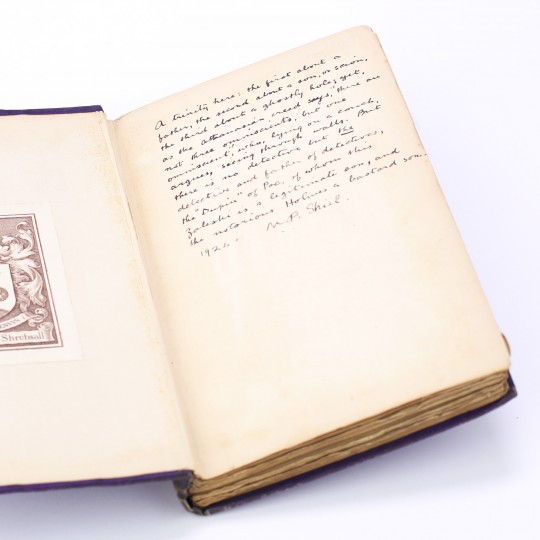 A trinity here: the first about a
father, the second about a son, or saxon,
the third about a ghostly hole; yet,
as the Athanasian creed says, "there are
not three omniscients, but one
omniscient", who, lying on a couch,
argues, seeing through walls. But
there is no detective but the
detective and father of detectives,
the "Dupin" of Poe, of whom this
Zaleski is a legitimate son, and
the notorious Holmes a bastard son.
M. P. Shiel.
Shrebsall